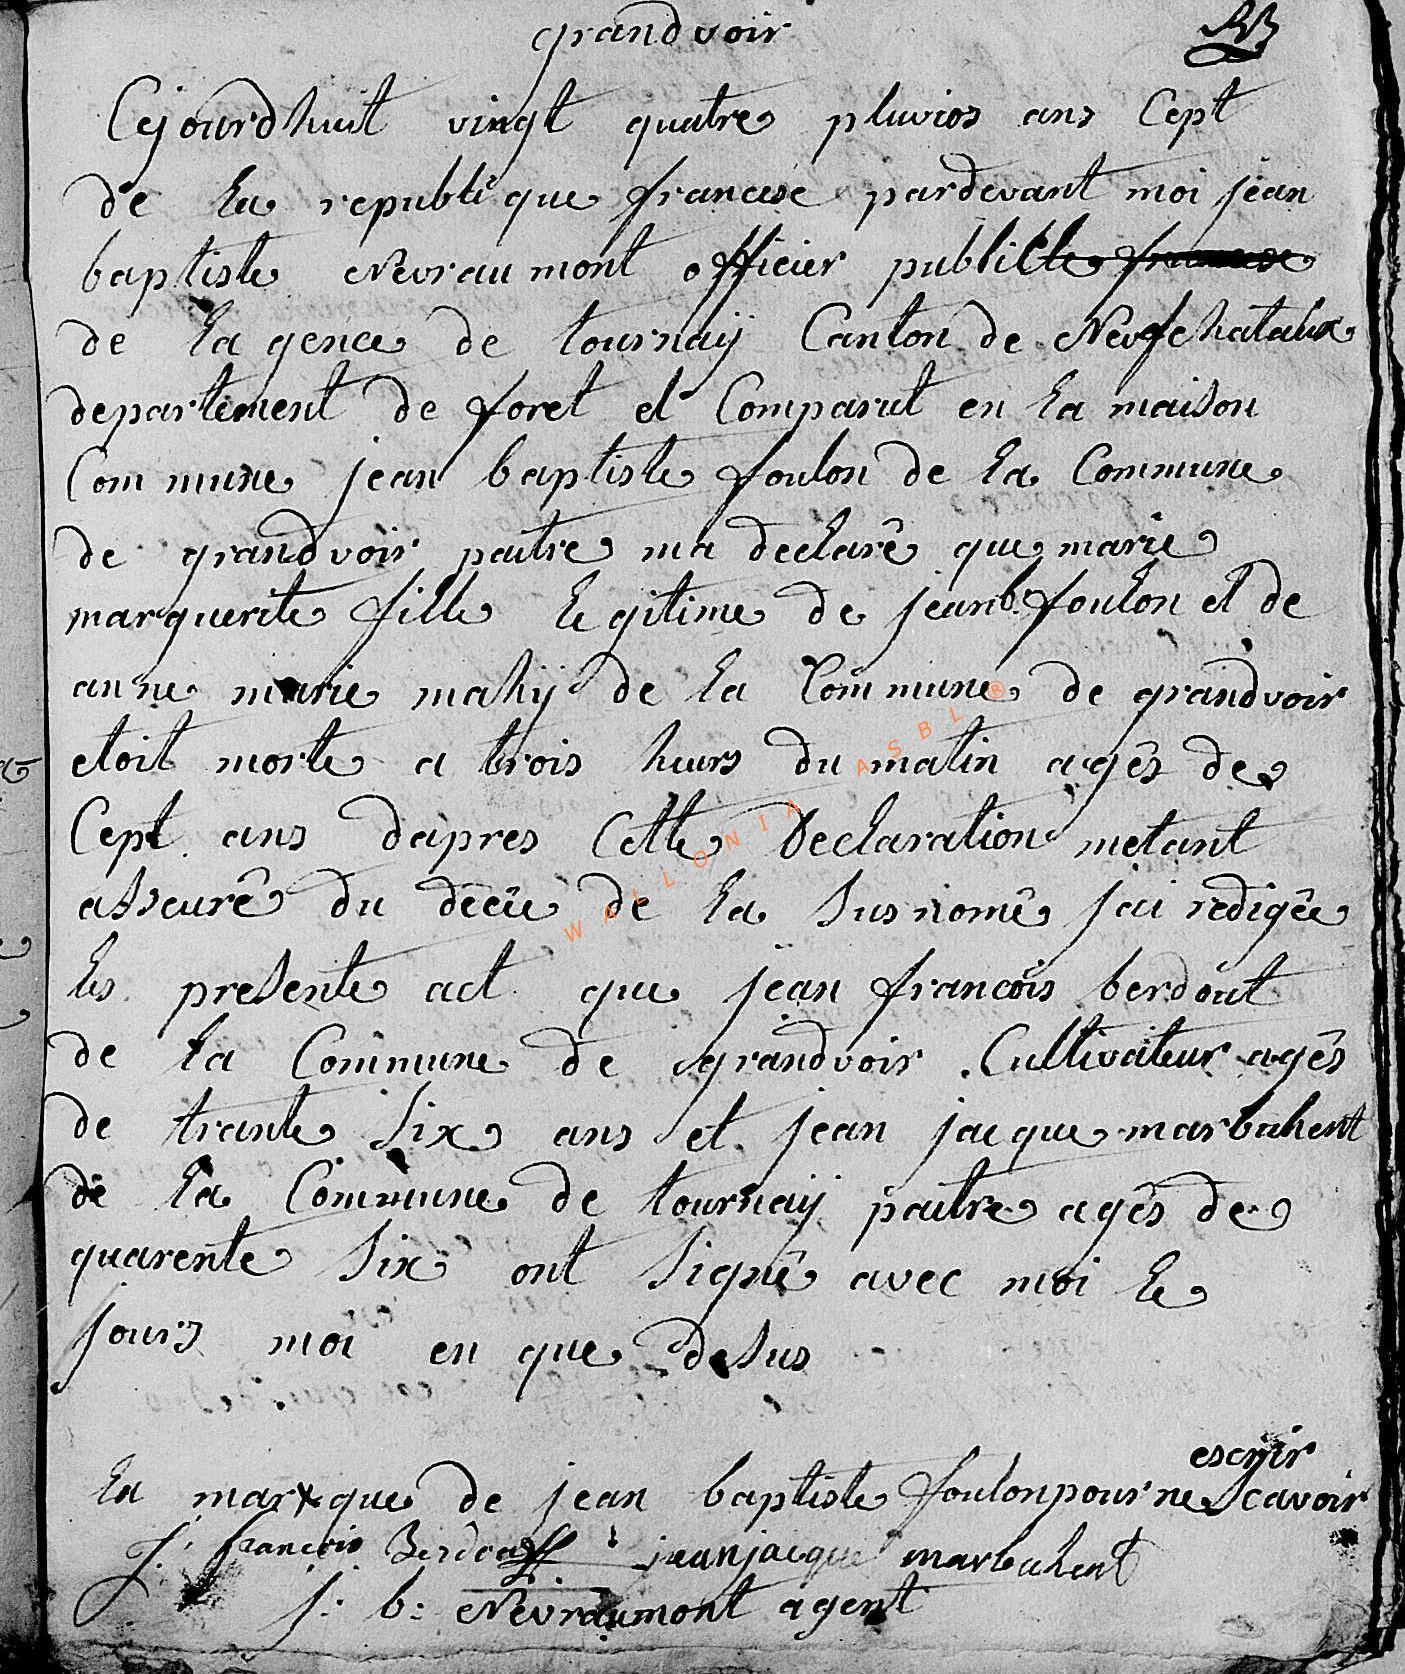 grandvoir
Cejourdhuit vingt quatre pluvios ans Cept
de La republique francese pardevant moi jean
baptiste Nevraumont officier publicke francese
de Lagence de tournaÿ Canton de Nevfchataux
departement de foret et Comparut en La maison
Commune jean baptiste foulon de La Commune
de grandvoir paitre ma declarê que marie
marguerite fille Legitime de jean b: foulon et de
anne marie mahÿ de La Commune de grandvoir
etoit morte a trois heurs du matin agês de
Cept ans dapres Cette Declaration metant
asseurê du decêe de La Susnomê jai redigêe
Les presente act que jean francois berdout
de La Commune de grandvoir Cultivateur agês
de trante Six ans et jean jacque marbahent
de La Commune de tournaÿ paitre agês de
quarente Six ont Signê avec moi Le
jours moi en que deSus
escrjir
La mar x que de jean baptiste foulon pour ne Scavoir
J: francois jeanjacque marbahent
j: b: Nevraumont agent
WALLONIA ASBL ®